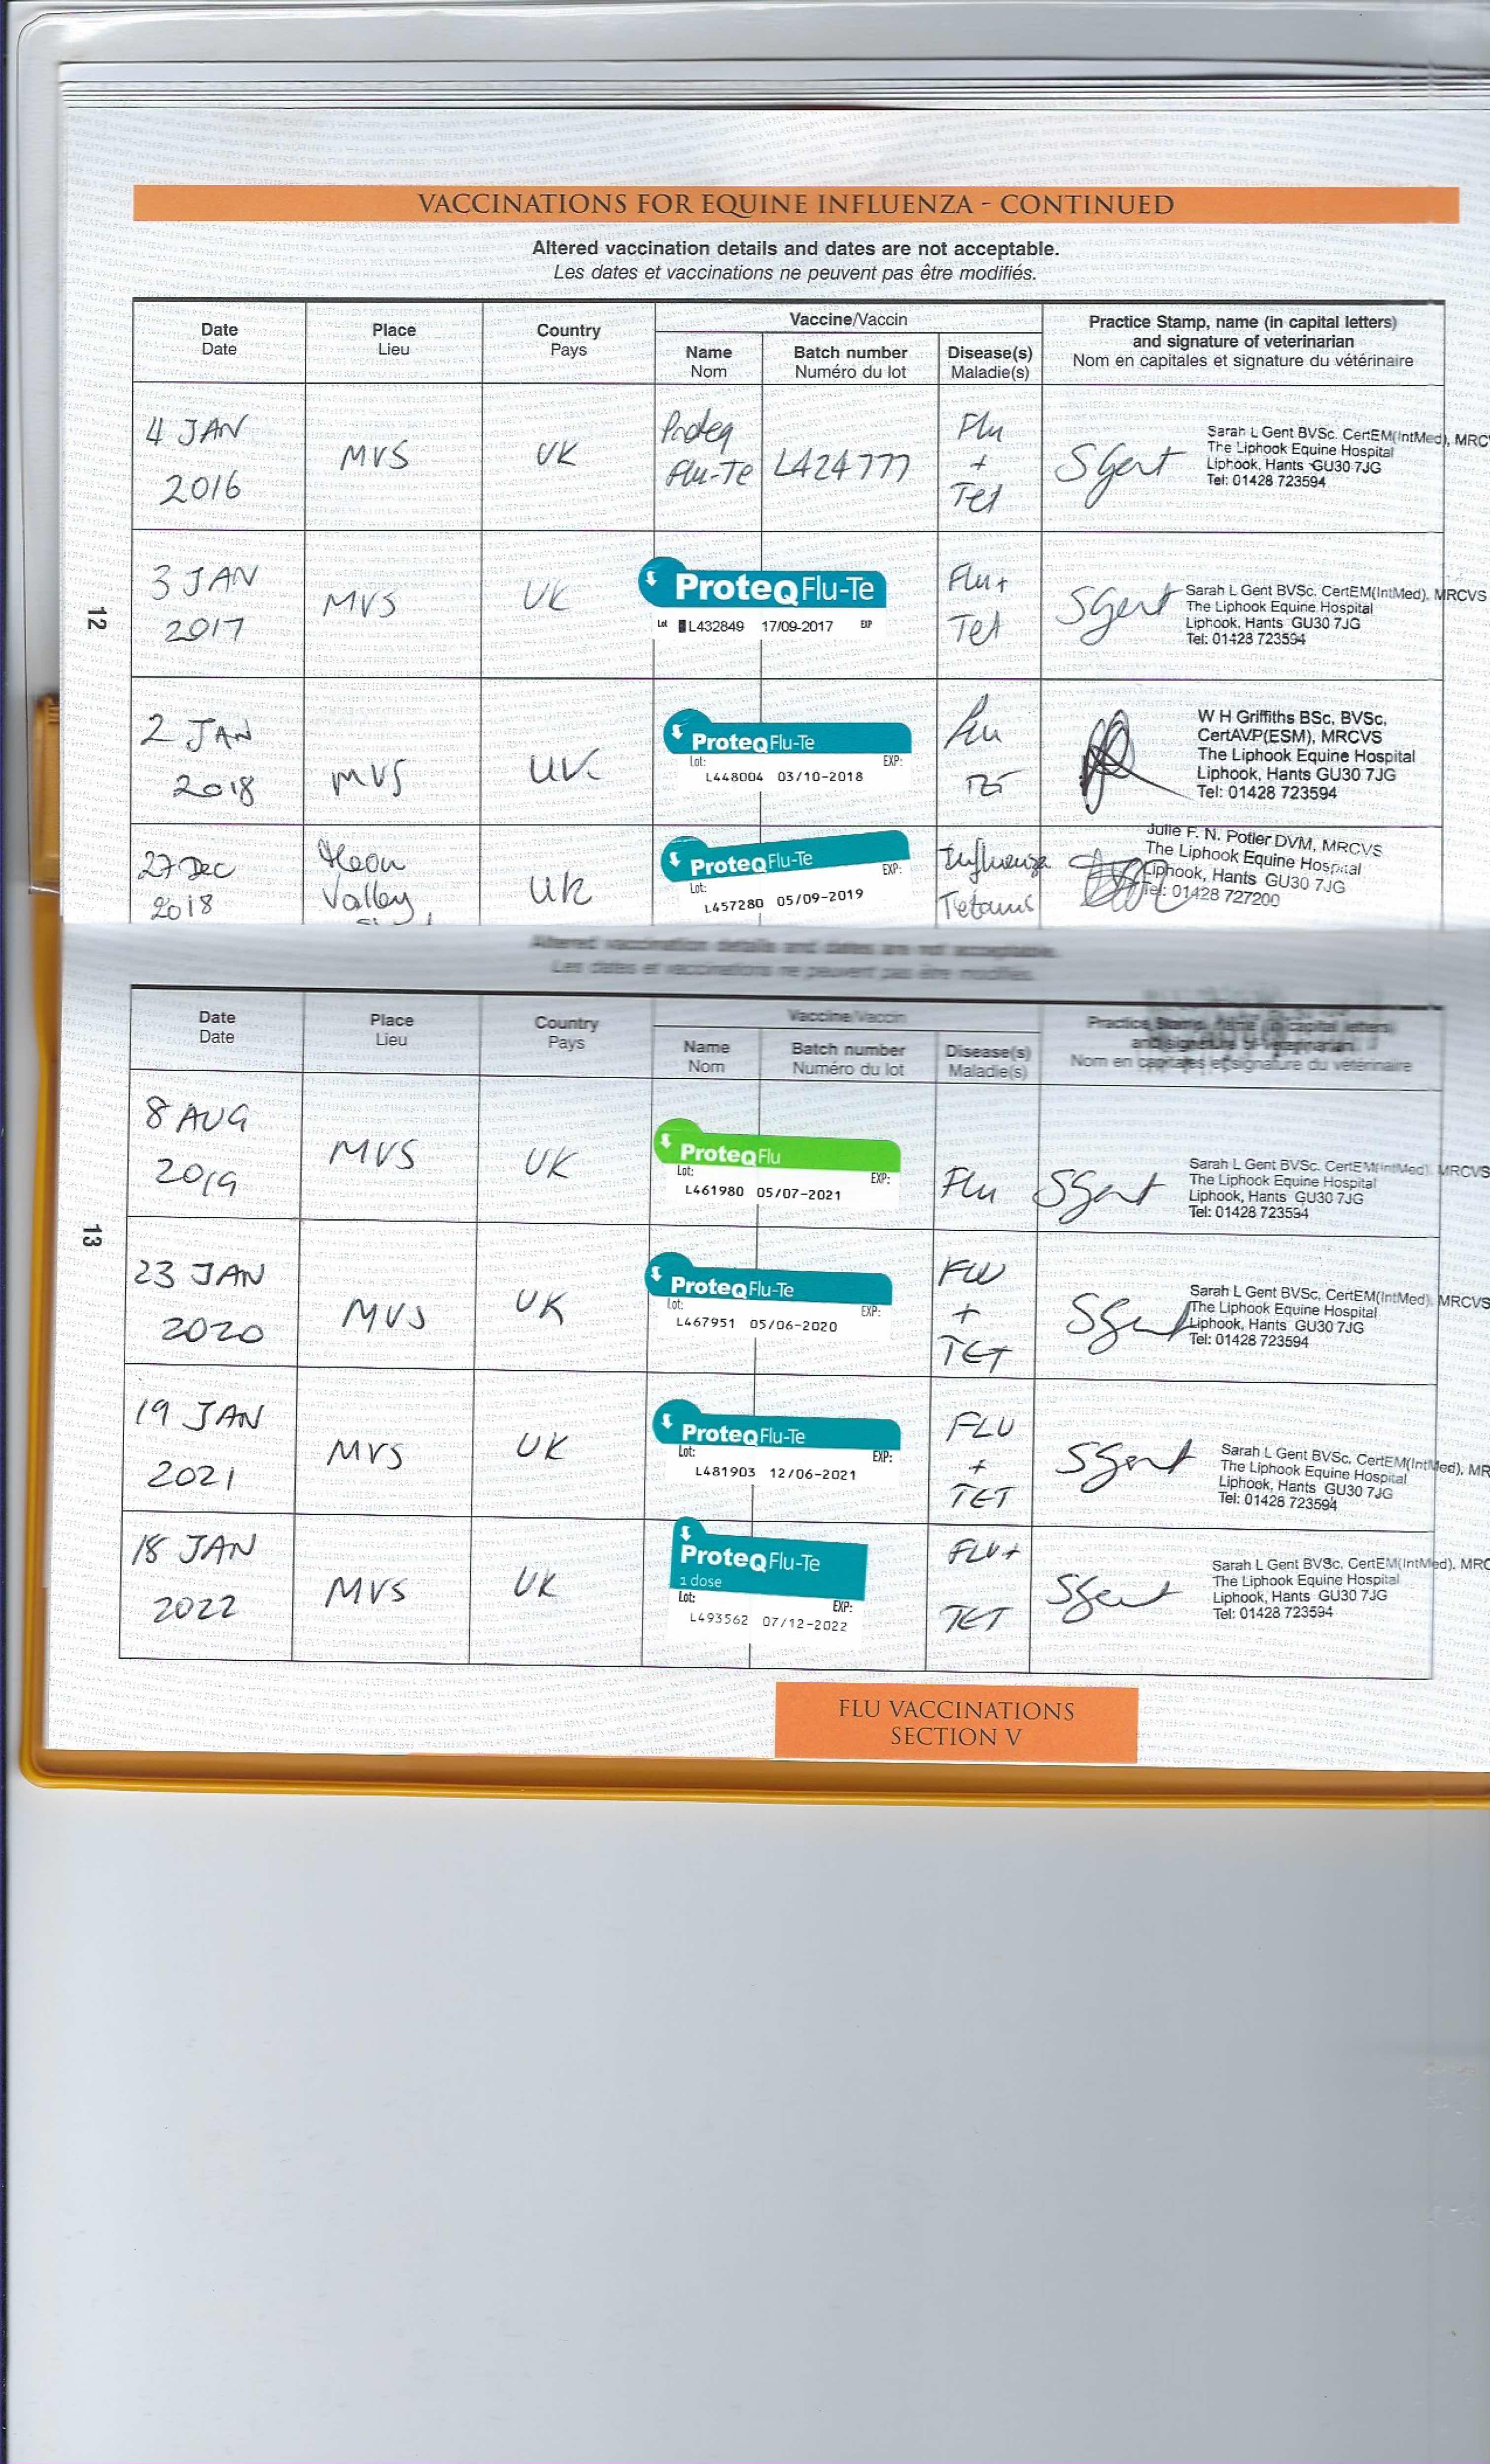 VACCINATIONS FOR EQUINE INFLUENZA - CONTINUED
Altered vaccination details and dates are not acceptable.
Les dates et vaccinations ne peuvent pas être modifiés.
Date
Date
Place
Lieu
Country
Pays
Vaccine/Vaccin
Name
Nom
Batch number
Numéro du lot
Disease(s)
Maladie(s)
Practice Stamp, name (in capital letters)
and signature of veterinarian
Nom en capitales et signature du vétérinaire
4 JAN
2016
MVS
UK
Proteq
Flu-Te
L424777
Flu
+
Tet
SGent
Sarah L Gent BVSc. CertEM(IntMed), MRC
The Liphook Equine Hospital
Liphook, Hants GU30 7JG
Tel: 01428 723594
12
3 JAN
2017
MVS
UK
ProteqFlu-Te
Lot L432849 17/09-2017 EXP
Flu+
Tet
SGent
Sarah L Gent BVSc. CertEM(IntMed), MRCVS
The Liphook Equine Hospital
Liphook, Hants GU30 7JG
Tel: 01428 723594
2 JAN
2018
MVS
UK
ProteqFlu-Te
Lot: EXP:
L448004 03/10-2018
Flu
TET
W H Griffiths BSc, BVSc,
CertAVP(ESM), MRCVS
The Liphook Equine Hospital
Liphook, Hants GU30 7JG
Tel: 01428 723594
27 Dec
2018
Meon
Valley
UK
ProteqFlu-Te
Lot: EXP:
L457280 05/09-2019
Influenza
Tetanus
Julie F. N. Potier DVM, MRCVS
The Liphook Equine Hospital
Liphook, Hants GU30 7JG
Tel: 01428 727200
Altered vaccination details and dates are not acceptable.
Les dates et vaccinations ne peuvent pas être modifiés.
Date
Date
Place
Lieu
Country
Pays
Vaccine/Vaccin
Name
Nom
Batch number
Numéro du lot
Disease(s)
Maladie(s)
Practice Stamp, name (in capital letters)
and signature of veterinarian
Nom en capitales et signature du vétérinaire
8 AUG
2019
MVS
UK
ProteqFlu
Lot: EXP:
L461980 05/07-2021
Flu
SGent
Sarah L Gent BVSc. CertEM(IntMed), MRCVS
The Liphook Equine Hospital
Liphook, Hants GU30 7JG
Tel: 01428 723594
13
23 JAN
2020
MVS
UK
ProteqFlu-Te
Lot: EXP:
L467951 05/06-2020
FLU
+
TET
SGent
Sarah L Gent BVSc, CertEM(IntMed), MRCVS
The Liphook Equine Hospital
Liphook, Hants GU30 7JG
Tel: 01428 723594
19 JAN
2021
MVS
UK
ProteqFlu-Te
Lot: EXP:
L481903 12/06-2021
FLU
+
TET
SGent
Sarah L Gent BVSc, CertEM(IntMed), MR
The Liphook Equine Hospital
Liphook, Hants GU30 7JG
Tel: 01428 723594
18 JAN
2022
MVS
UK
ProteqFlu-Te
1 dose
Lot: EXP:
L493562 07/12-2022
FLU+
TET
SGent
Sarah L Gent BVSc. CertEM(IntMed), MRC
The Liphook Equine Hospital
Liphook, Hants GU30 7JG
Tel: 01428 723594
FLU VACCINATIONS
SECTION V